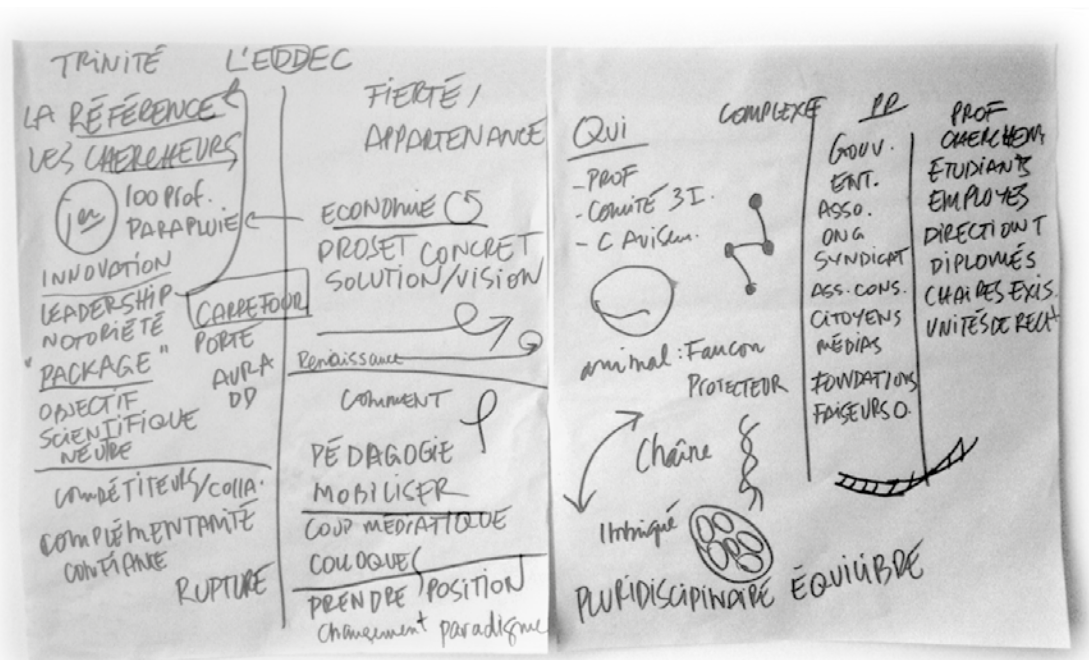 TRINITÉ L'EDDEC
LA RÉFÉRENCE
LES CHERCHEURS
1er
100 Prof.
PARAPLUIE
INNOVATION
LEADERSHIP
NOTORIÉTÉ
"PACKAGE"
OBJECTIF
SCIENTIFIQUE
NEUTRE
CARREFOUR
PORTE
AURA
DD
COMPÉTITEURS/COLLA.
COMPLÉMENTARITÉ
CONFIANCE
RUPTURE
FIERTÉ /
APPARTENANCE
ECONOMIE
PROJET CONCRET
SOLUTION/VISION
Renaissance
COMMENT
PÉDAGOGIE
MOBILISER
COUP MÉDIATIQUE
COLLOQUE
PRENDRE POSITION
changement paradigme
Qui
- PROF
- COMITÉ 3I.
- C Aviseur.
COMPLEXE
animal: Faucon
PROTECTEUR
Chaîne
Imbriqué
PLURIDISCIPINAIRE ÉQUILIBRE
PP
GOUV.
ENT.
ASSO.
ONG
SYNDICAT
ASS. CONS.
CITOYENS
MÉDIAS
FONDATIONS
FAISEURS O.
PROF
CHERCHEURS
ÉTUDIANTS
EMPLOYES
DIRECTION T
DIPLOMÉS
CHAIRES EXIS.
UNITÉS DE RECH